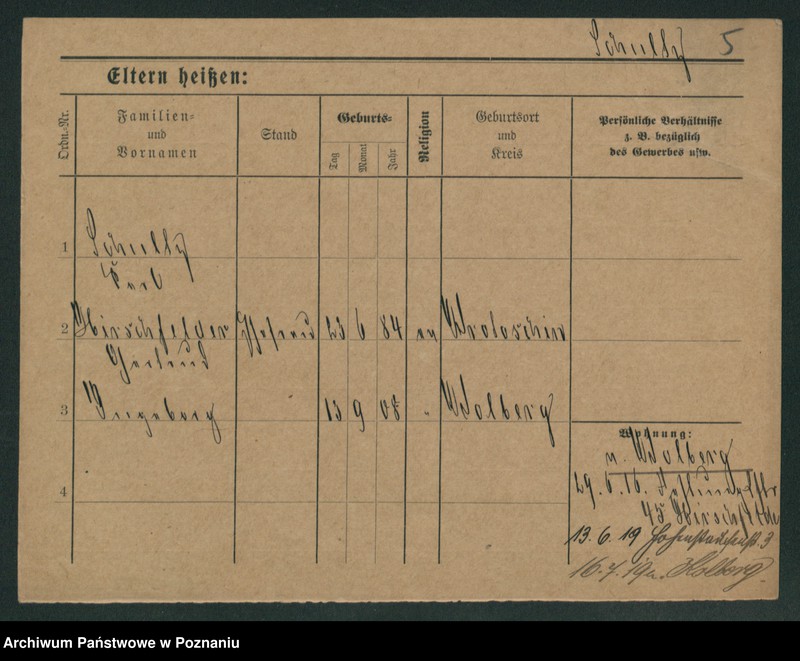 Schultz 5
Eltern heißen:
Ordn.-Nr.
Familien-
und
Vornamen
Stand
Geburts-
Tag
Monat
Jahr
Religion
Geburtsort
und
Kreis
Persönliche Verhältnisse
z. B. bezüglich
des Gewerbes usw.
1 Schultz
2 Hirschfelder 23 6 84 ev
Gertrud
3 Ingeborg 13 9 08 " Kolberg
Wohnung:
n. Kolberg
29. 6. 16.
45
13. 6. 19 3
16. 7. 19 n. Kolberg
4
Archiwum Państwowe w Poznaniu